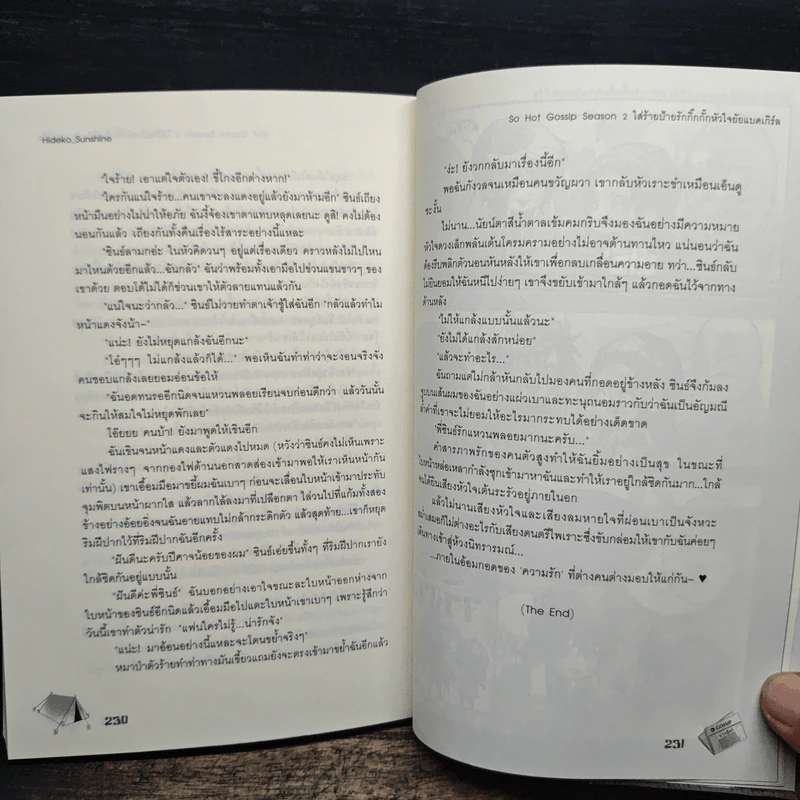 Hideko_Sunshine
"ใจร้าย! เอาแต่ใจตัวเอง! ขี้โกงอีกต่างหาก!"
"ใครกันแน่ใจร้าย...คนเขาจะลงแดงอยู่แล้วยังมาห้ามอีก" ชินธ์เถียง
หน้ามึนอย่างไม่น่าให้อภัย ฉันงี้จ้องเขาตาแทบหลุดเลยนะ ดูสิ! คงไม่ต้อง
นอนกันแล้ว เถียงกันทั้งคืนเรื่องไร้สาระอย่างนี้แหละ
"ชินธ์ลามกอ่ะ ในหัวคิดวนๆ อยู่แต่เรื่องเดียว คราวหลังไม่ไปไหน
มาไหนด้วยอีกแล้ว...ฉันกลัว" ฉันว่าพร้อมทั้งเอามือไปข่วนแขนขาวๆ ของ
เขาด้วย ตอบโต้ไม่ได้ก็ข่วนเขาให้ตัวลายแทนแล้วกัน
"แน่ใจนะว่ากลัว..." ชินธ์ไม่วายทำตาเจ้าชู้ใส่ฉันอีก "กลัวแล้วทำไม
หน้าแดงจังน้า~"
"แน่ะ! ยังไม่หยุดแกล้งฉันอีกนะ"
"โอ๋ๆๆๆ ไม่แกล้งแล้วก็ได้..." พอเห็นฉันทำท่าว่าจะงอนจริงจัง
คนชอบแกล้งเลยยอมอ่อนข้อให้
"ฉันอดทนรออีกนิดจนแหวนพลอยเรียนจบก่อนดีกว่า แล้ววันนั้น
จะกินให้สมใจไม่หยุดพักเลย"
โอ๊ยยย คนบ้า! ยังมาพูดให้เขินอีก
ฉันเขินจนหน้าแดงและตัวแดงไปหมด (หวังว่าชินธ์คงไม่เห็นเพราะ
แสงไฟรางๆ จากกองไฟด้านนอกสาดส่องเข้ามาพอให้เราเห็นหน้ากัน
เท่านั้น) เขาเอื้อมมือมาขยี้ผมฉันเบาๆ ก่อนจะเลื่อนใบหน้าเข้ามาประทับ
จุมพิตบนหน้าผากใส แล้วลากไล้ลงมาที่เปลือกตา ไล่วนไปที่แก้มทั้งสอง
ข้างอย่างอ้อยอิ่งจนฉันอายแทบไม่กล้ากระดิกตัว แล้วสุดท้าย...เขาก็หยุด
ริมฝีปากไว้ที่ริมฝีปากฉันอีกครั้ง
"ฝันดีนะครับปีศาจน้อยของผม" ชินธ์เอ่ยขึ้นทั้งๆ ที่ริมฝีปากเรายัง
ใกล้ชิดกันอยู่แบบนั้น
"ฝันดีค่ะพี่ชินธ์" ฉันบอกอย่างเอาใจขณะละใบหน้าออกห่างจาก
ใบหน้าของชินธ์อีกนิดแล้วเอื้อมมือไปแตะใบหน้าเขาเบาๆ เพราะรู้สึกว่า
วันนี้เขาทำตัวน่ารัก "แฟนใครไม่รู้...น่ารักจัง"
"แน่ะ! มาอ้อนอย่างนี้แหละจะโดนขย้ำจริงๆ"
หมาป่าตัวร้ายทำท่าทางมันเขี้ยวแถมยังจะตรงเข้ามาขย้ำฉันอีกแล้ว
230
So Hot Gossip Season 2 ใส่ร้ายป้ายรักกิ๊กกั๊กหัวใจยัยแบดเกิร์ล
"ง่ะ! ยังวกกลับมาเรื่องนี้อีก"
พอฉันกังวลจนเหมือนคนขวัญผวา เขากลับหัวเราะขำเหมือนเอ็นดู
ซะงั้น
ไม่นาน...นัยน์ตาสีน้ำตาลเข้มคมกริบจึงมองฉันอย่างมีความหมาย
หัวใจดวงเล็กพลันเต้นโครมครามอย่างไม่อาจต้านทานไหว แน่นอนว่าฉัน
ต้องรีบพลิกตัวนอนหันหลังให้เขาเพื่อกลบเกลื่อนความอาย ทว่า...ชินธ์กลับ
ไม่ยินยอมให้ฉันหนีไปง่ายๆ เขาจึงขยับเข้ามาใกล้ๆ แล้วกอดฉันไว้จากทาง
ด้านหลัง
"ไม่ให้แกล้งแบบนั้นแล้วนะ"
"ยังไม่ได้แกล้งสักหน่อย"
"แล้วจะทำอะไร..."
ฉันถามแต่ไม่กล้าหันกลับไปมองคนที่กอดอยู่ข้างหลัง ชินธ์จึงก้มลง
จูบบนเส้นผมของฉันอย่างแผ่วเบาและทะนุถนอมราวกับว่าฉันเป็นอัญมณี
ล้ำค่าที่เขาจะไม่ยอมให้อะไรมากระทบได้อย่างเด็ดขาด
"พี่ชินธ์รักแหวนพลอยมากนะครับ..."
คำสารภาพรักของคนตัวสูงทำให้ฉันยิ้มอย่างเป็นสุข ในขณะที่
ใบหน้าหล่อเหลากำลังซุกเข้ามาหาฉันและทำให้เราอยู่ใกล้ชิดกันมาก...ใกล้
จนได้ยินเสียงหัวใจเต้นระรัวอยู่ภายในอก
แล้วไม่นานเสียงหัวใจและเสียงลมหายใจที่ผ่อนเบาเป็นจังหวะ
สม่ำเสมอก็ไม่ต่างอะไรกับเสียงดนตรีไพเราะซึ่งขับกล่อมให้เขากับฉันค่อยๆ
เดินทางเข้าสู่ห้วงนิทรารมณ์...
...ภายในอ้อมกอดของ 'ความรัก' ที่ต่างคนต่างมอบให้แก่กัน~ ♥
(The End)
GOSSIP
231